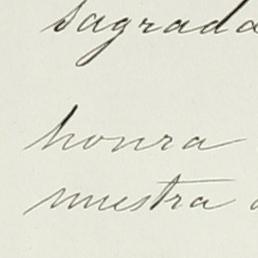 sagrada
honra
muestra